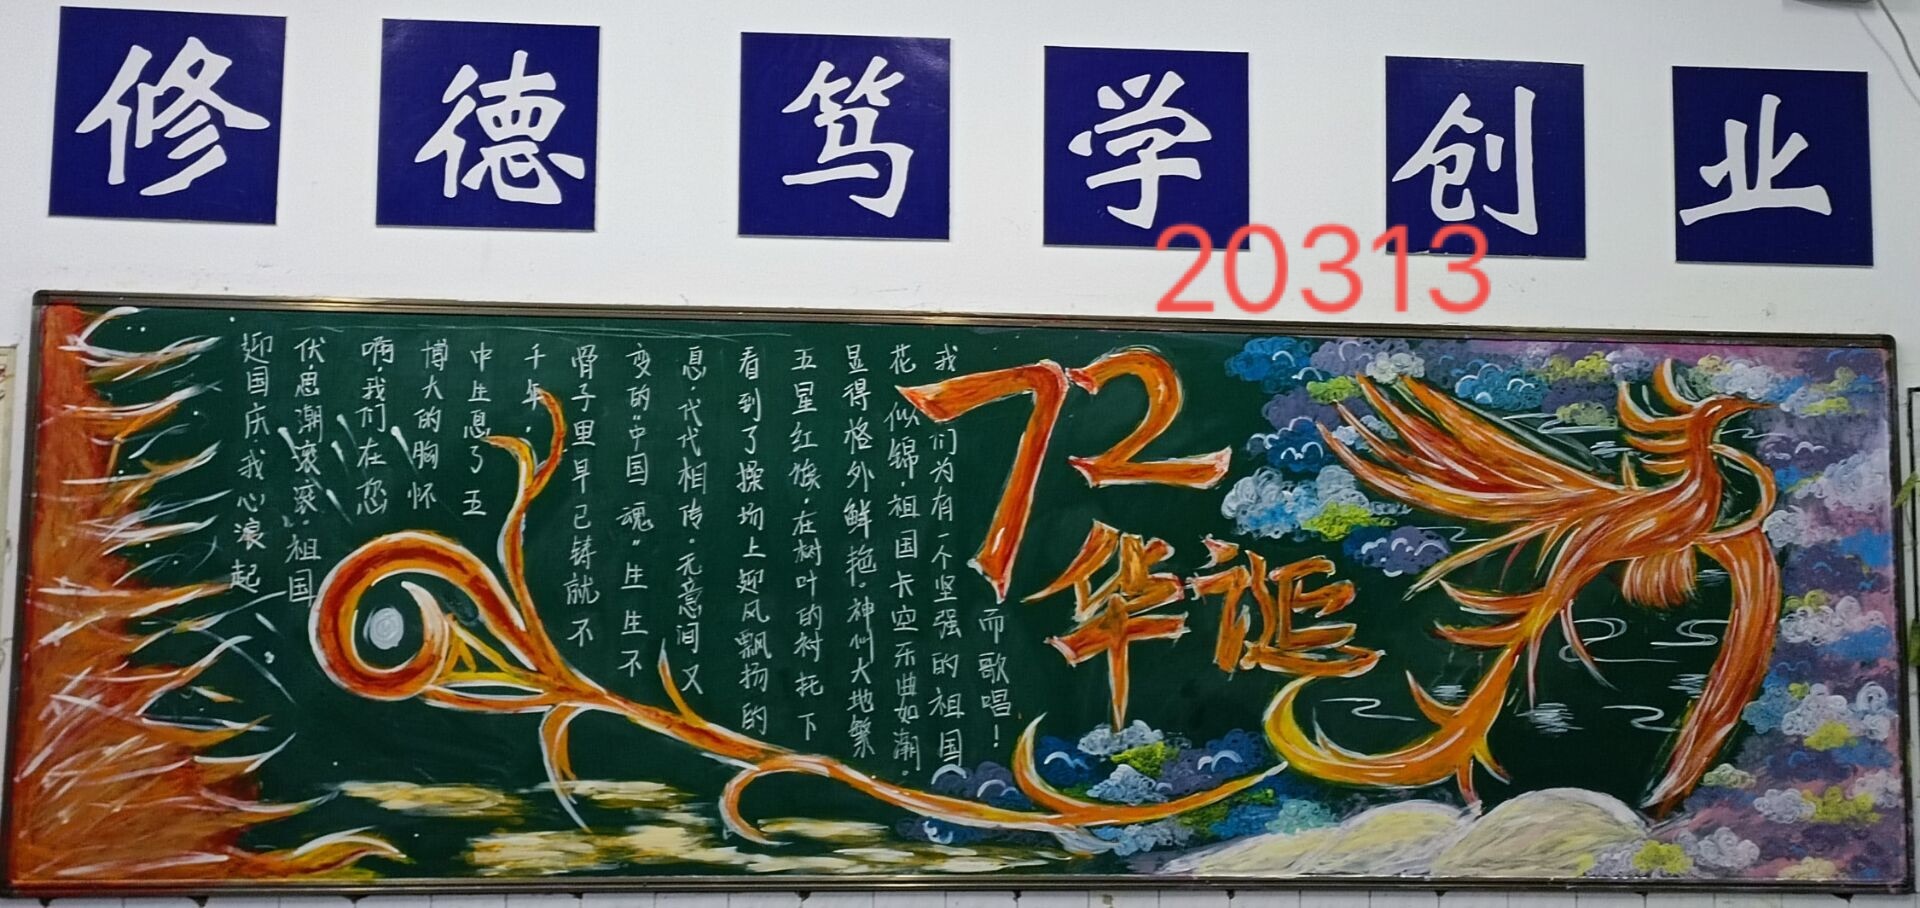 修德笃学创业
20313
迎国庆,我心浪起
伏,思潮滚滚,祖国
啊,我们在您
博大的胸怀
中生息了五
千年,
骨子里早已铸就不
变的“中国魂”生生不
息,代代相传。无意间又
看到了操场上迎风飘扬的
五星红旗,在树叶的衬托下
显得格外鲜艳。神州大地繁
花似锦,祖国长空乐曲如潮。
我们为有一个坚强的祖国
而歌唱!
72
华诞